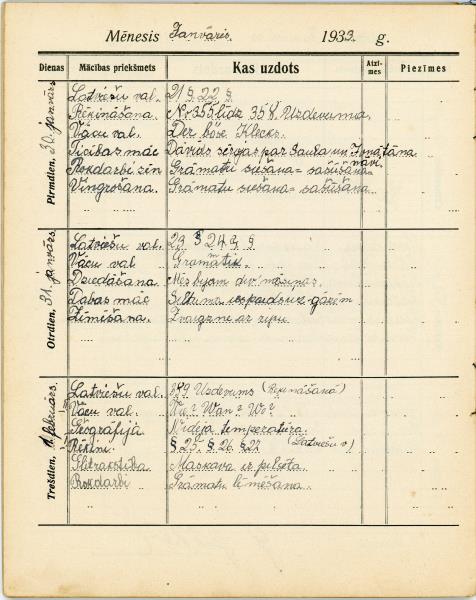 Mēnesis Janvāris. 1933. g.
Dienas Mācības priekšmets Kas uzdots Atzīmes Piezīmes
Pirmdien, 30. janvārs
Latviešu val. 21 § 22 §
Rēķināšana. Nr 355 līdz 358. Uzdevuma
Vācu val. Der böse Klecks.
Ticības māc Dāvids sērojas par Saula un Jonatāna nāvi.
Rokdarbi zin Grāmatu siešana = sašūšana
Vingrošana. Grāmatu siešana = sašūšana
Otrdien, 31. janvārs
Latviešu val. 23 § 24 § §
Vācu val Gramatik.
Dziedāšana. Mēs bijām div' māsiņas.
Dabas māc Siltuma iespaids uz gāzēm
Zīmēšana. Zvaigzne ar ripu
Trešdien, 1. februārs.
Latviešu val. 389 Uzdevums (Rēķināšanā)
Vācu val. Wie? Wan? Wo?
Ģeogrāfija Vidējā temperatūra.
Rēķini. § 25. § 26. § 27 (Latviešu v)
Glītrakstība Maskava ir pilsēta.
Rokdarbi Grāmatu līmēšana.